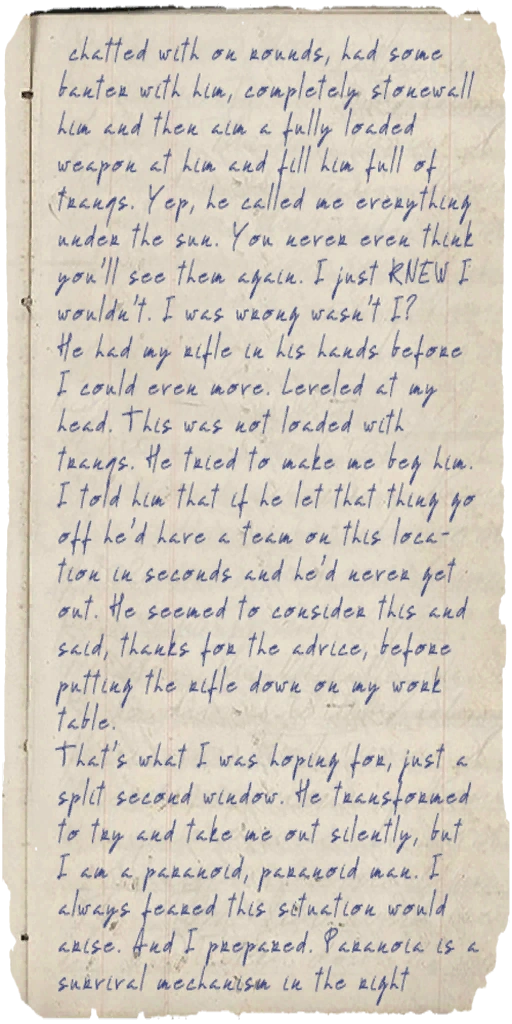 chatted with on rounds, had some
banter with him, completely stonewall
him and then aim a fully loaded
weapon at him and fill him full of
tranqs. Yep, he called me everything
under the sun. You never even think
you'll see them again. I just KNEW I
wouldn't. I was wrong wasn't I?
He had my rifle in his hands before
I could even move. Leveled at my
head. This was not loaded with
tranqs. He tried to make me beg him.
I told him that if he let that thing go
off he'd have a team on this loca-
tion in seconds and he'd never get
out. He seemed to consider this and
said, thanks for the advice, before
putting the rifle down on my work
table.
That's what I was hoping for, just a
split second window. He transformed
to try and take me out silently, but
I am a paranoid, paranoid man. I
always feared this situation would
arise. And I prepared. Paranoia is a
survival mechanism in the right